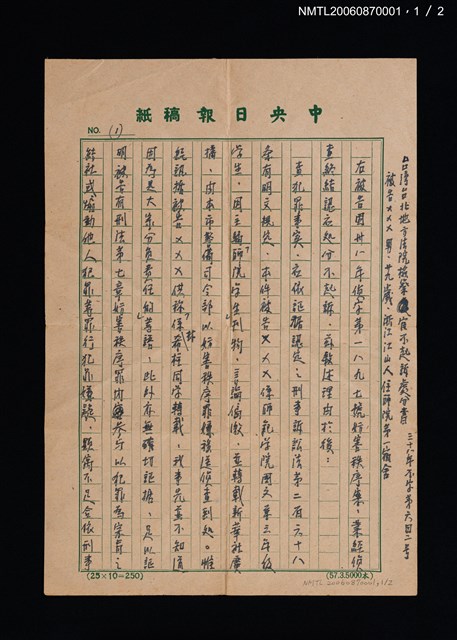 NMTL20060870001，1／2
中央日報稿紙
NO. (1)
台灣台北地方法院檢察官不起訴處分書 三十八年不字第六四二号
被告××× 男，廿九歲，浙江江山人 住師院第一宿舍
右被告民卅八年偵字第一八九七號妨害秩序案，業經偵
查終結認应处分不起訴，茲敘述理由於後：
查犯罪事實，应依証據認定之，刑事訴訟法第二百六十八
条有明文規定，本件被告×××係師範学院國文系三年級
学生，因主編師院学生刊物，言論偏激，並轉載新華社廣
播，由本市警備司令部以妨害秩序罪嫌移送偵查到处。惟
經訊據被告×××供称「係蔡桂同学轉載，我事先並不知道
因為是大家分負責任的」等語，此外亦無確切証據，足以証
明被告有刑法第七章妨害秩序罪内参與以犯罪為宗旨之
結社或煽動他人犯罪等罪行犯罪嫌疑，顯係不足合依刑事
(25×10=250)
(57.3.5000本)
NMTL20060870001，1/2